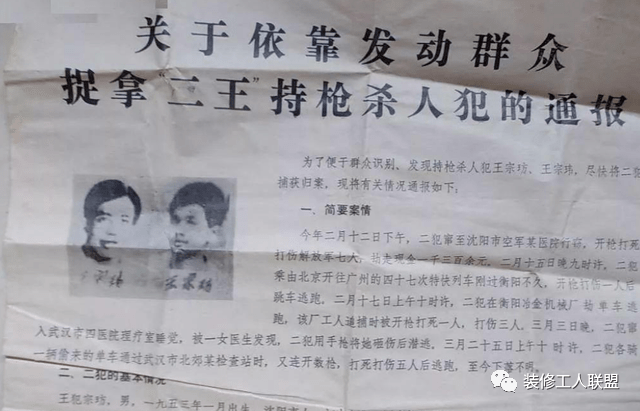 关于依靠发动群众
捉拿“二王”持枪杀人犯的通报
为了便于群众识别、发现持枪杀人犯王宗坊、王宗玮，尽快将二犯
捕获归案，现将有关情况通报如下：
一、简要案情
今年二月十二日下午，二犯窜至沈阳市空军某医院行窃，开枪打死
打伤解放军七人，劫走现金一千三百余元，二月十五日晚九时许，二犯
乘由北京开往广州的四十七次特快列车刚过衡阳不久，开枪打伤一人后
跳车逃跑，二月十七日上午十时许，二犯在衡阳冶金机械厂劫单车逃
跑，该厂工人追捕时被开枪打死一人，打伤三人，三月三日晚，二犯
入武汉市四医院理疗室睡觉，被一女医生发现，二犯用手枪将她砸伤后潜逃，三月二十五日上午十时许，二犯各骑
一辆偷来的单车通过武汉市北郊某检查站时，又连开数枪，打死打伤五人后逃跑，至今下落不明。
二、二犯的基本情况
王犯宗坊，男，一九五三年一月出生
装修工人联盟